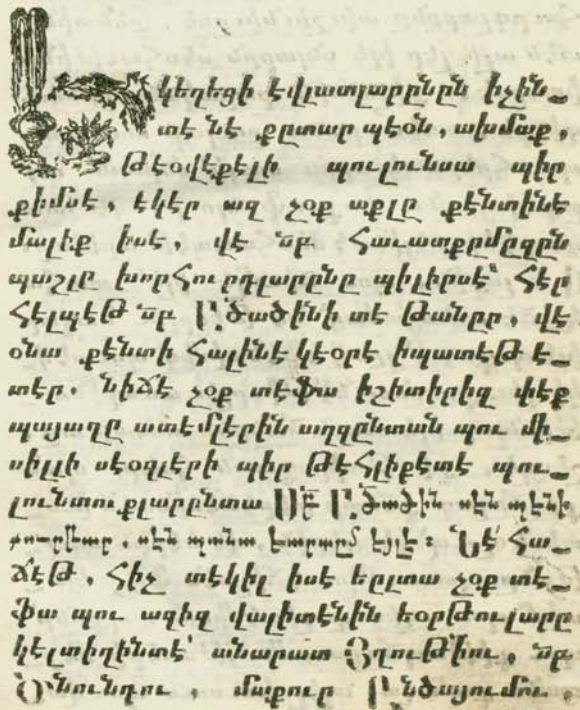 կեղեցի էվլատլարընըն իչին_
տէ նէ քըտար պէօն, ախմաք,
Թէօվէքէլի պուլունսա պիր
քիմսէ, էկէր ազ չօք աքլը քէնտինէ
մալիք իսէ, վէ սբ Հաւատքըմըզըն
պաշլը խորՀուրդլարընը պիլիրսէ՝ Հէր
Հէլպէթ սբ Աստծածինի տէ թանըր, վէ
օնա քէնտի Հալինէ կէօրէ իպատէթ է_
տէր. նիճէ չօք տէֆա իշիտիրիզ փէք
պայաղը ատէմլէրին աղզընտան պու մի_
սիլլի սէօզլէրի պիր թէՀլիքէտէ պու_
լունտուքլարընտա Սբ Աստածածին սէն պէնի
քուրթար, սէն պանա եարտըմ էյլէ: Նէ Հա_
ճէթ, Հիչ տէկիլ իսէ եըլտա չօք տէ_
ֆա պու ազիզ վալիտէնին եօրթուլարը
կէլտիղինտէ՝ անարատ Յղութիւ, սբ
Ծնունդու, մաքուր Ընծայումու,